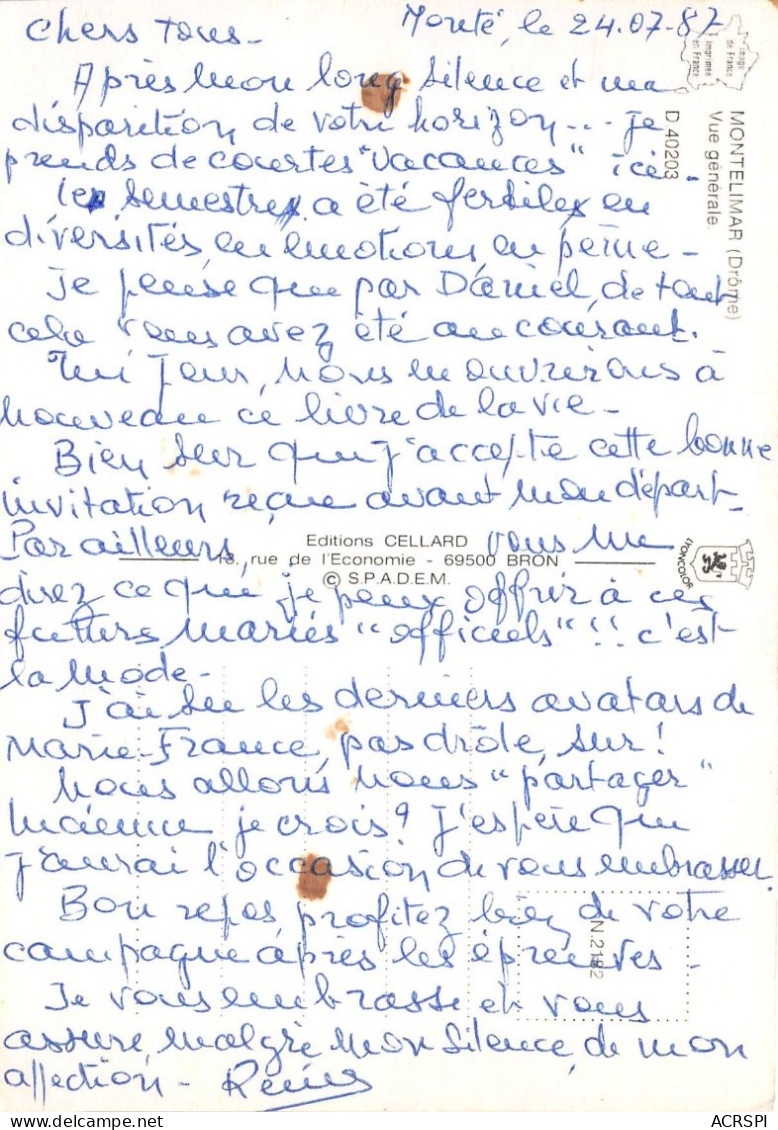 Monté, le 24.07-87
Chers Tous -
Après mon long silence et ma
disparition de votre horizon... je
prends de courtes "vacances" ici -
le semestre a été fertile en
diversités, en émotions, en peine -
Je pense que par Daniel, de tout
cela vous avez été au courant.
Un jour, nous en ouvrirons à
nouveau ce livre de la vie -
Bien sur que j'accepte cette bonne
invitation reçue avant mon départ -
Par ailleurs, vous me
direz ce que je peux offrir à ces
futurs mariés "officiels"!! c'est
la mode -
J'ai su les derniers avatars de
Marie-France, pas drôle, sur!
Nous allons nous "partager"
je crois? J'espère que
j'aurai l'occasion de vous embrasser.
Bon repos, profitez bien de votre
campagne après les épreuves -
Je vous embrasse et vous
assure, malgré mon silence, de mon
affection -
Editions CELLARD
13, rue de l'Economie - 69500 BRON
© S.P.A.D.E.M.
MONTELIMAR (Drôme)
Vue générale.
D 40203
image
de France
imprimée
en France
LYONCOLOR
N.2182
ACRSPI